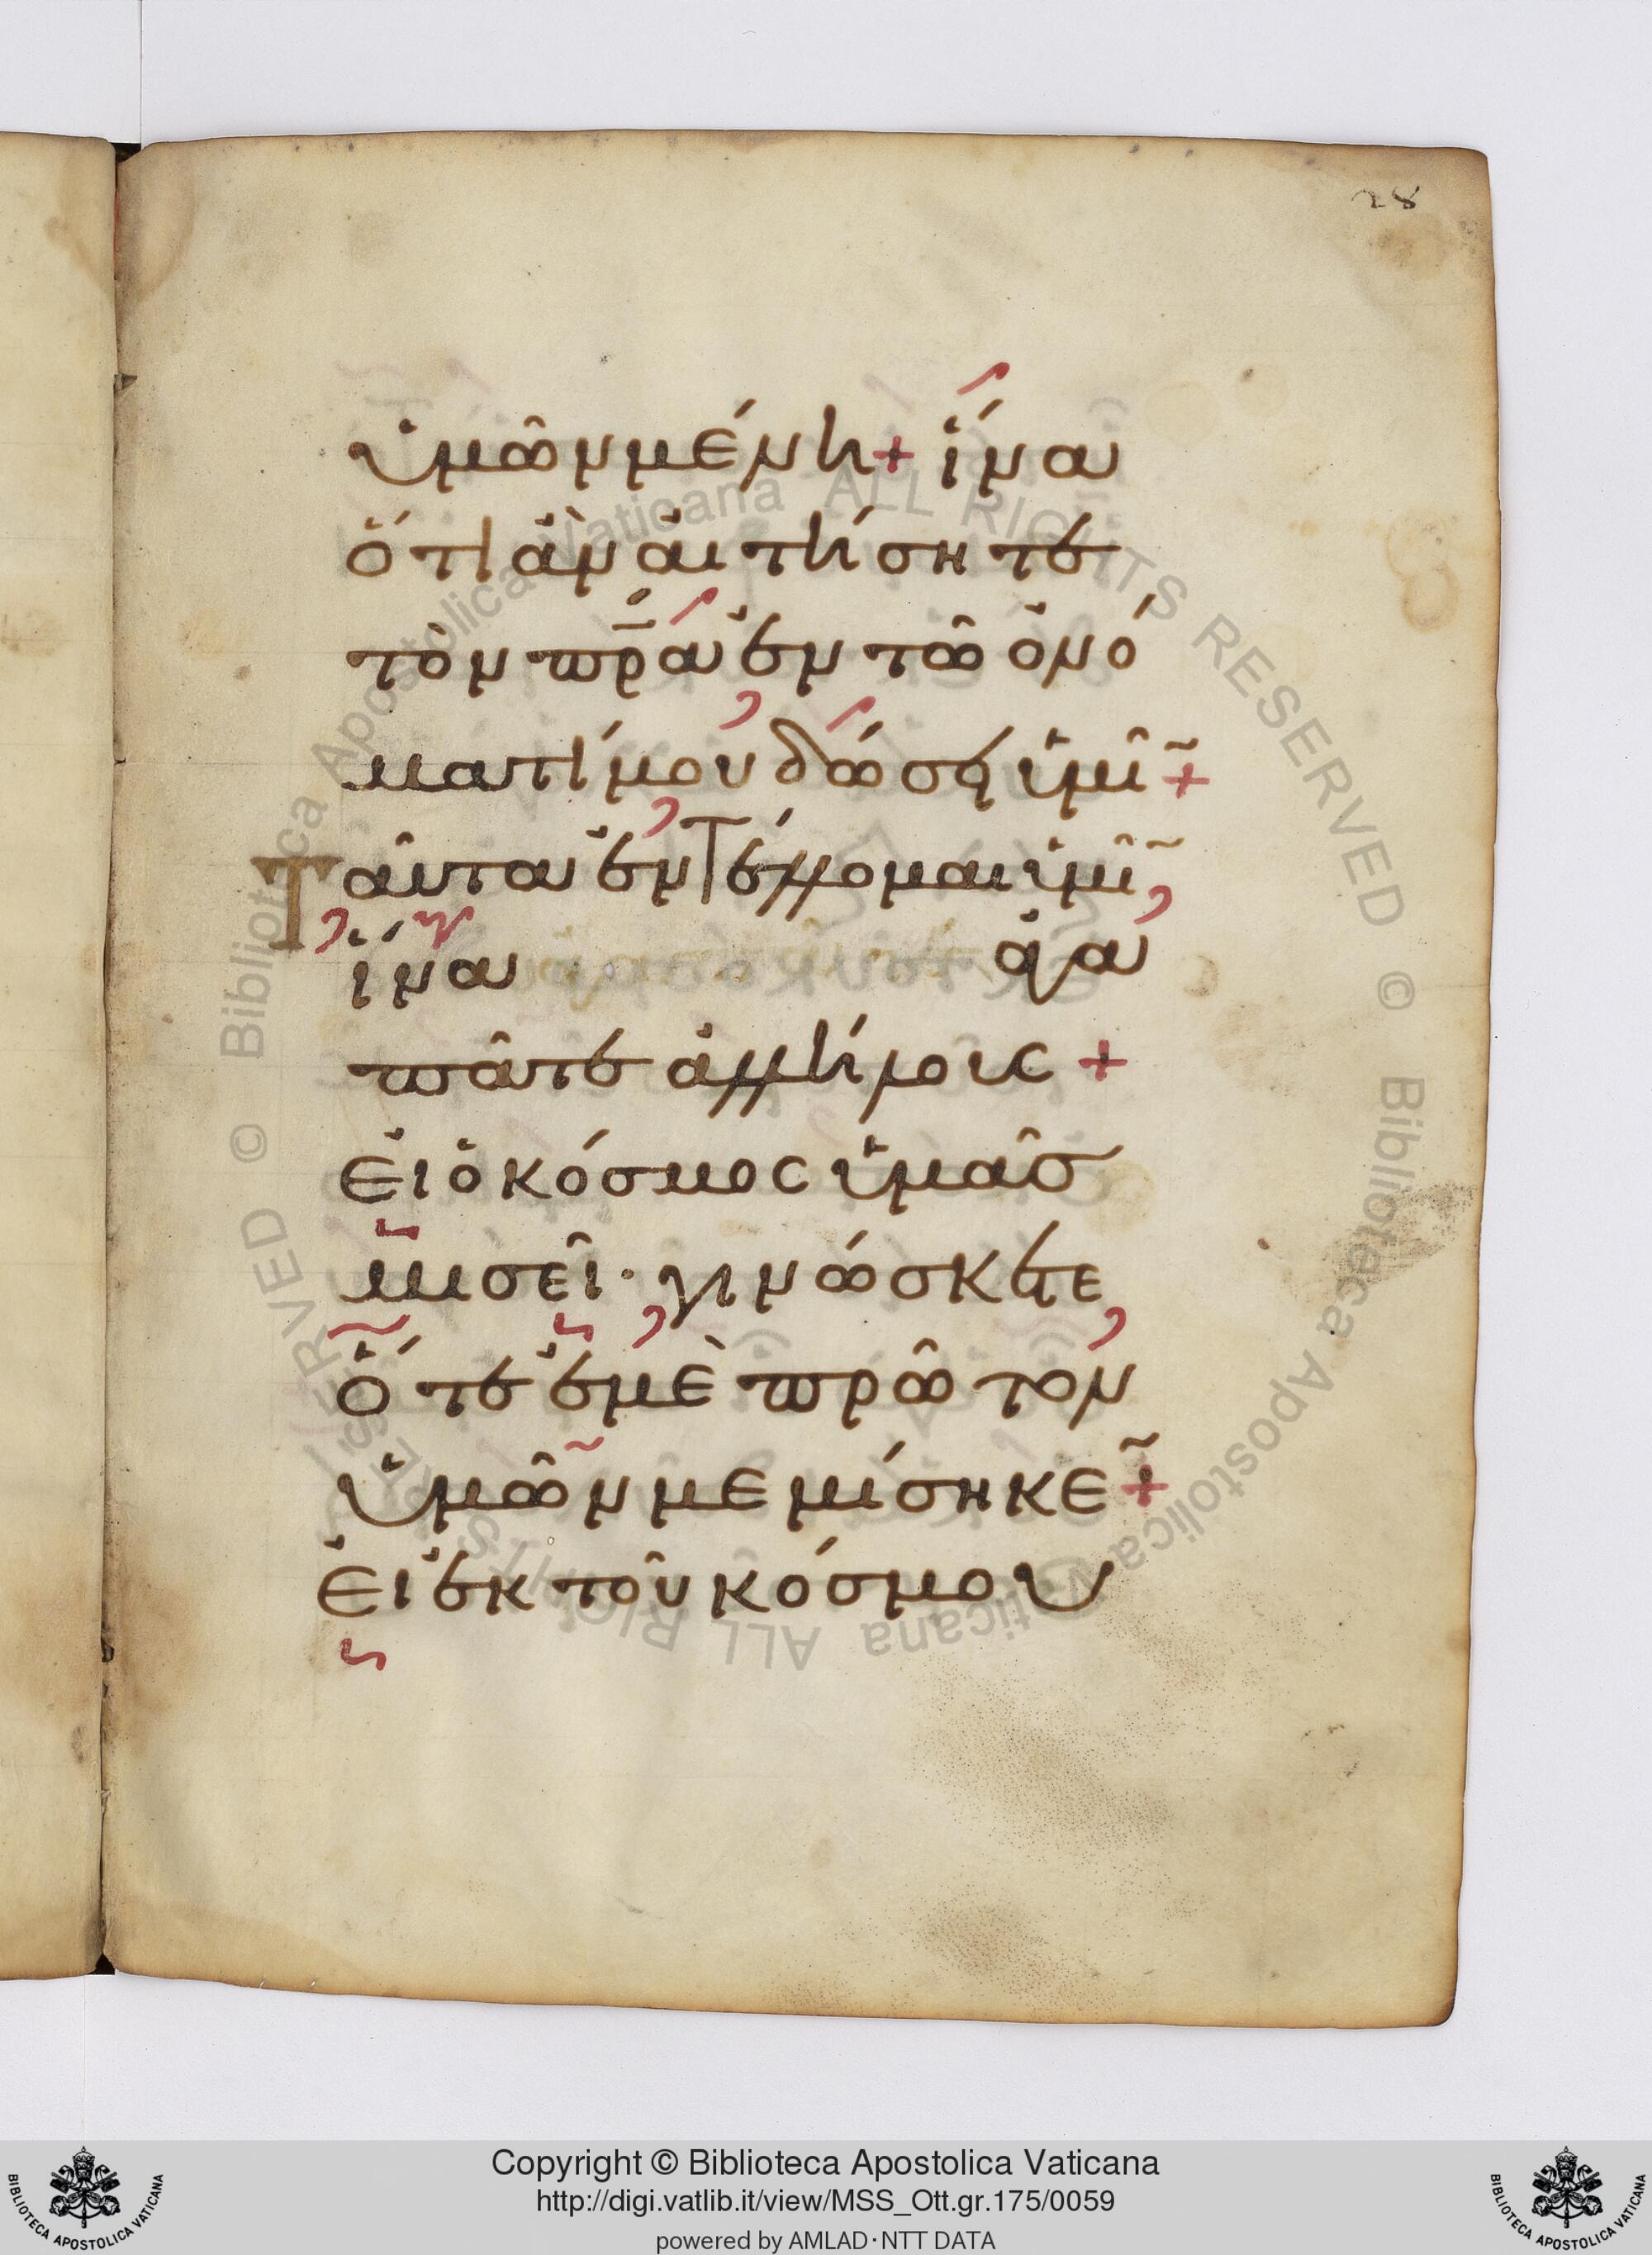 28
ὑμῶν μένη + ἵνα
ὅτι ἂν αἰτήσητε
τὸν πρ̅α ἐν τῶ ὀνό
ματί μου δώσῃ ὑμῖ +
Ταῦτα ἐντέλλομαι ὑμῖ,
ἵνα ἀγα
πᾶτε ἀλλήλους +
εἰ ὁ κόσμος ὑμᾶσ
μισεῖ · γινώσκετε,
ὅτι ἐμὲ πρῶτον
ὑμῶν μεμίσηκε +
εἰ ἐκ τοῦ κόσμου
Biblioteca Apostolica Vaticana ALL RIGHTS RESERVED ©
Biblioteca Apostolica Vaticana ALL RIGHTS RESERVED ©
BIBLIOTECA APOSTOLICA VATICANA
Copyright © Biblioteca Apostolica Vaticana
http://digi.vatlib.it/view/MSS_Ott.gr.175/0059
powered by AMLAD·NTT DATA
BIBLIOTECA APOSTOLICA VATICANA